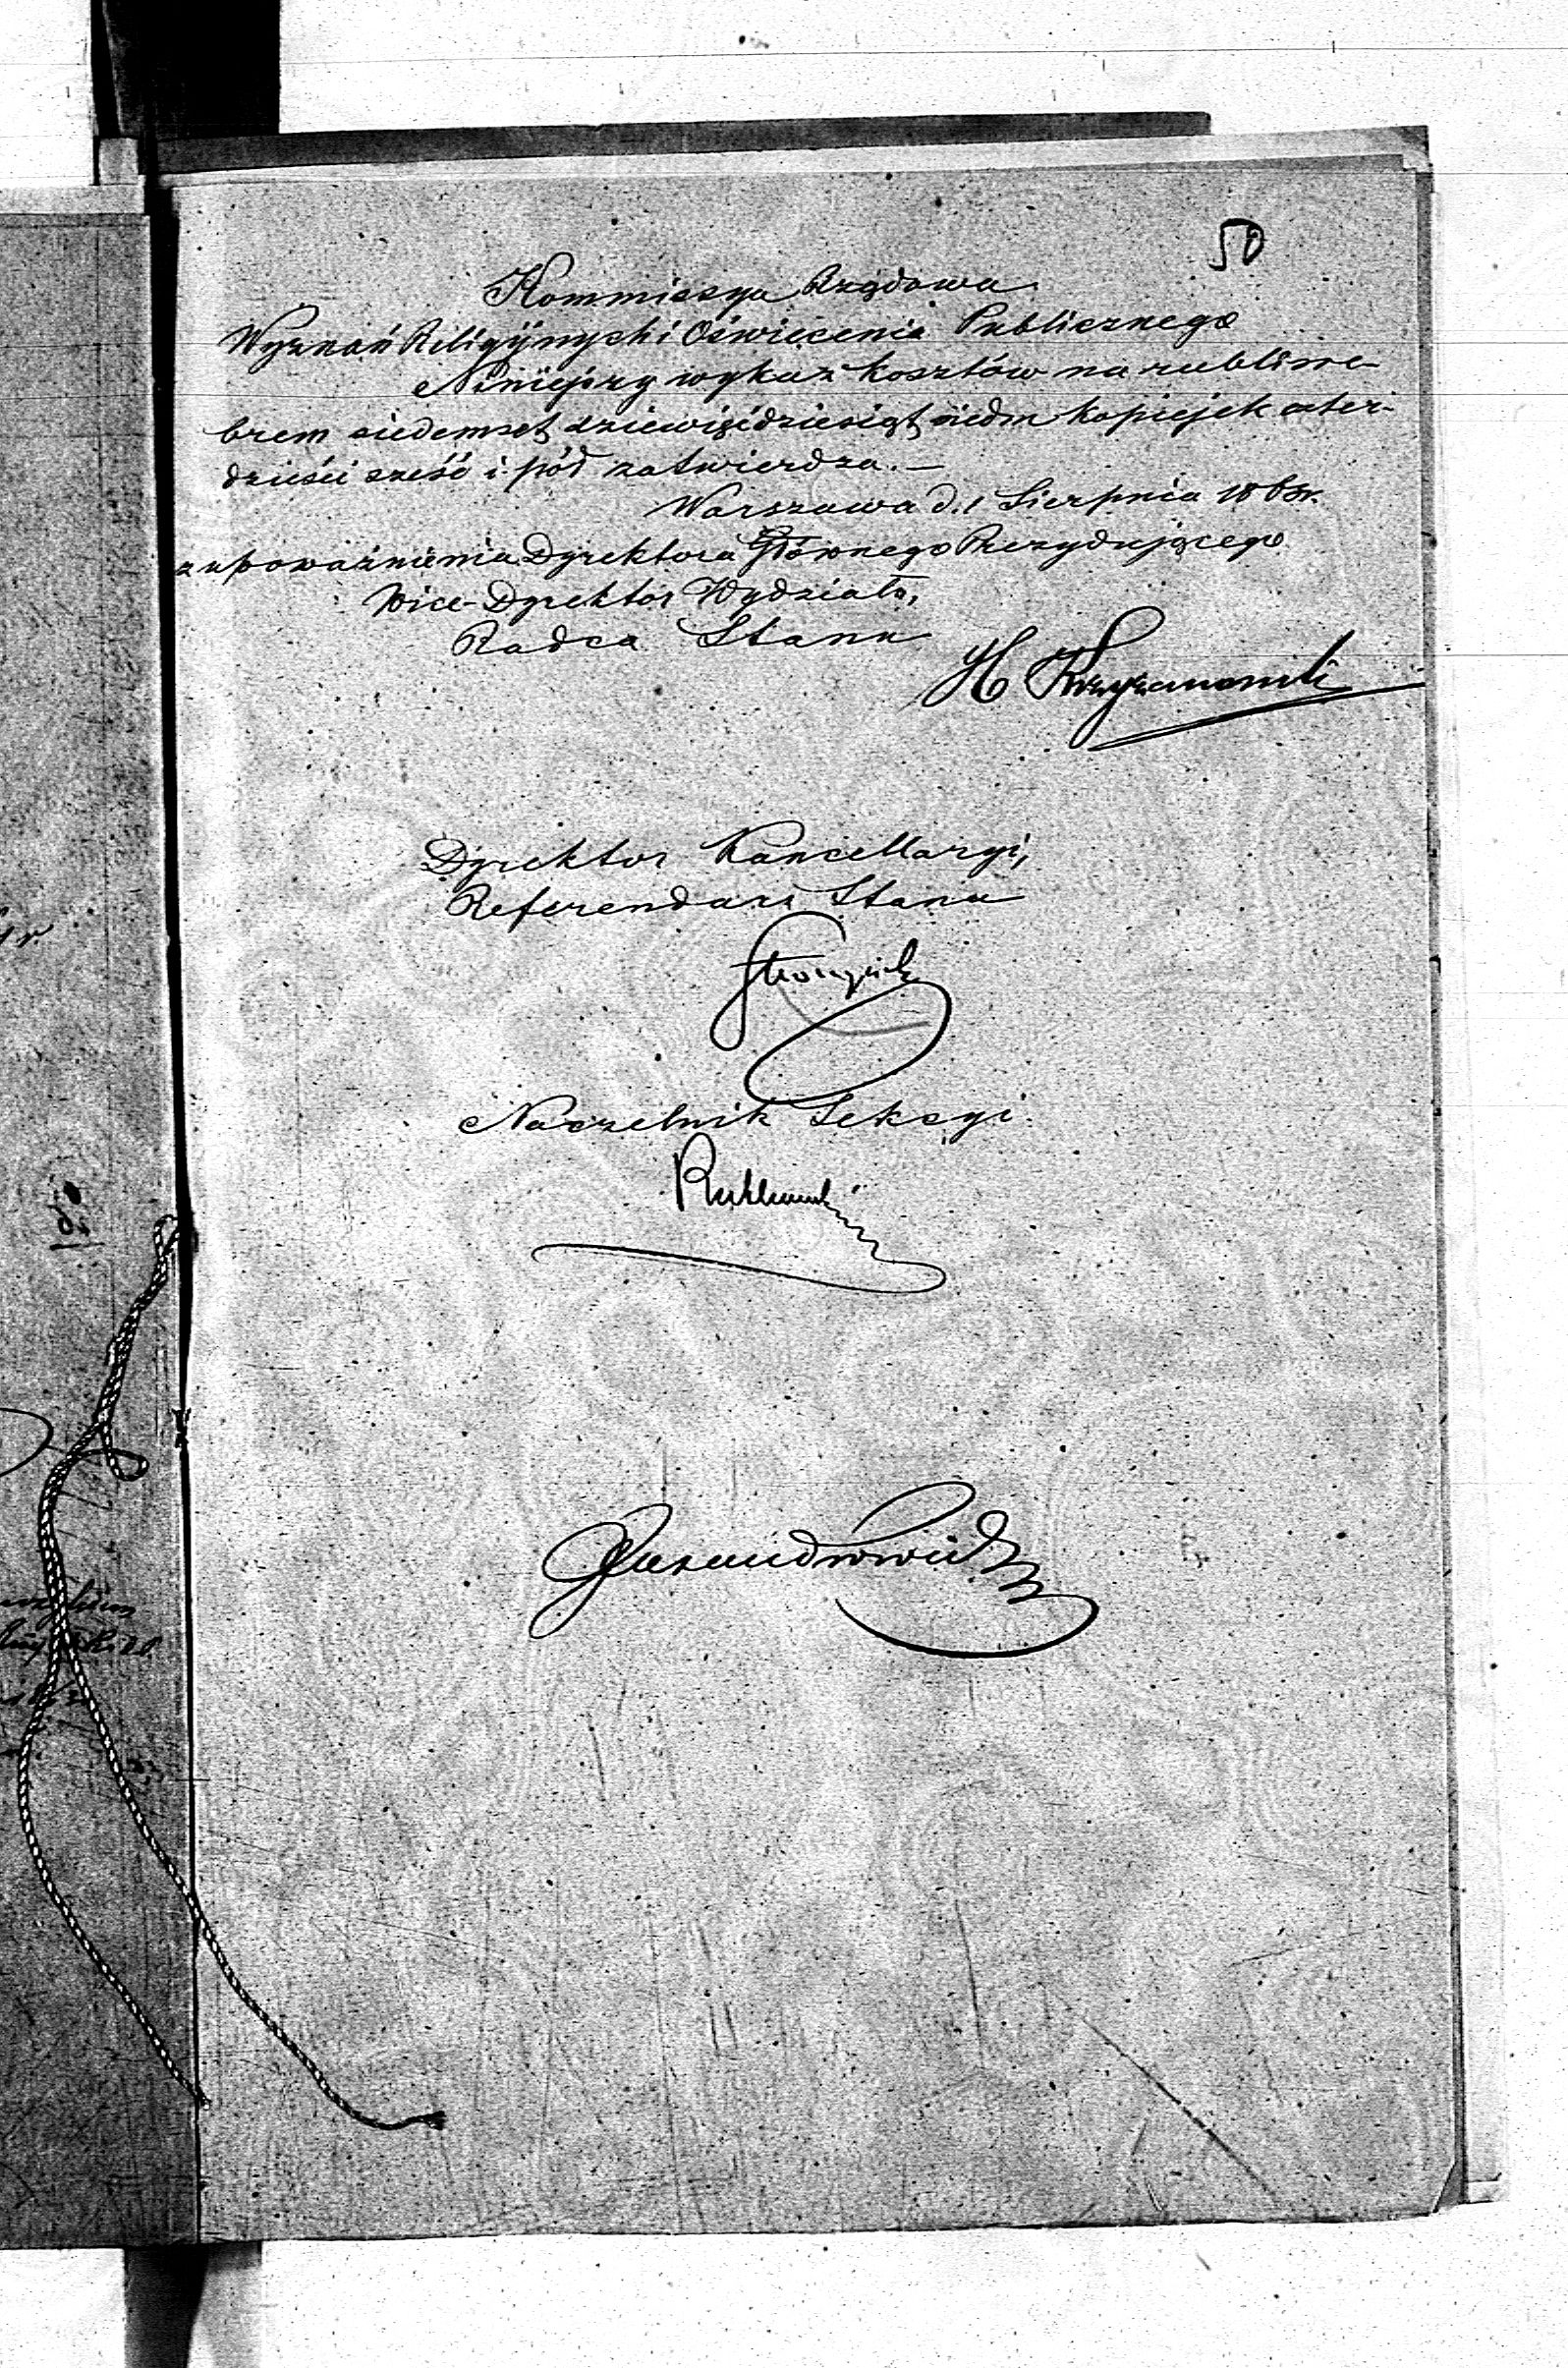 50
Kommissya Rządowa
Wyznań Religijnych i Oświecenia Publicznego
Niniejszy wykaz kosztów na rubli sre-
brem siedemset dziewięćdziesiąt siedm kopiejek czter-
dzieści sześć i pół zatwierdza. —
Warszawa d. 1 Sierpnia
z upoważnienia Dyrektora Głównego Prezydującego
Vice-Dyrektor Wydziału,
Radca Stanu
H Krzyżanowski
Dyrektor Kancellaryi,
Referendarz Stanu
Stronczyński
Naczelnik Sekcyi